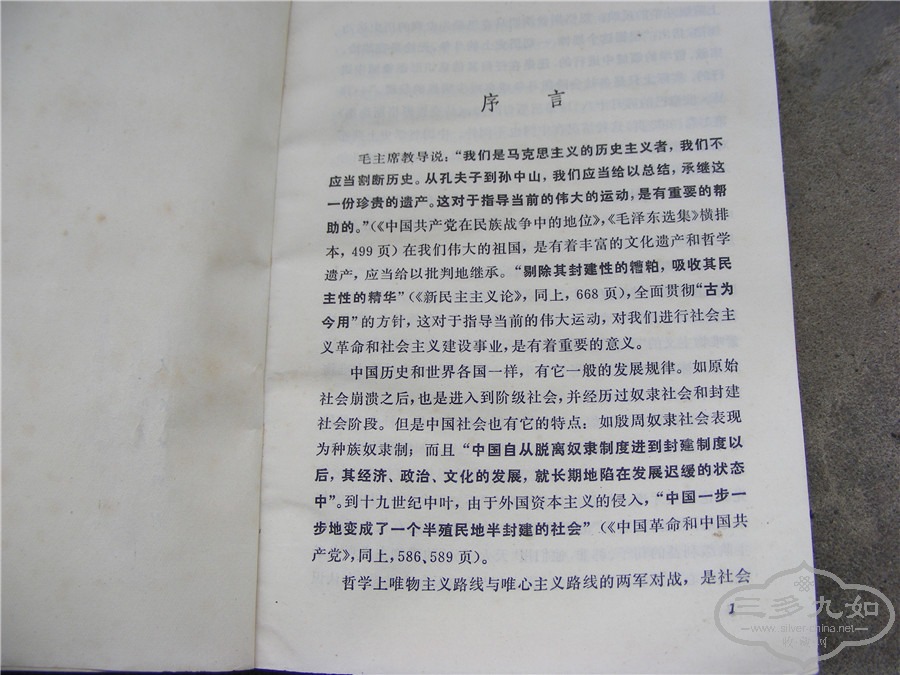 序 言
毛主席教导说：“我们是马克思主义的历史主义者，我们不
应当割断历史。从孔夫子到孙中山，我们应当给以总结，承继这
一份珍贵的遗产。这对于指导当前的伟大的运动，是有重要的帮
助的。”（《中国共产党在民族战争中的地位》，《毛泽东选集》横排
本，499 页）在我们伟大的祖国，是有着丰富的文化遗产和哲学
遗产，应当给以批判地继承。“剔除其封建性的糟粕，吸收其民
主性的精华”（《新民主主义论》，同上，668 页），全面贯彻“古为
今用”的方针，这对于指导当前的伟大运动，对我们进行社会主
义革命和社会主义建设事业，是有着重要的意义。
中国历史和世界各国一样，有它一般的发展规律。如原始
社会崩溃之后，也是进入到阶级社会，并经历过奴隶社会和封建
社会阶段。但是中国社会也有它的特点：如殷周奴隶社会表现
为种族奴隶制；而且“中国自从脱离奴隶制度进到封建制度以
后，其经济、政治、文化的发展，就长期地陷在发展迟缓的状态
中”。到十九世纪中叶，由于外国资本主义的侵入，“中国一步一
步地变成了一个半殖民地半封建的社会”（《中国革命和中国共
产党》，同上，586、589 页）。
哲学上唯物主义路线与唯心主义路线的两军对战，是社会
1
三多九如
www.silver-china.net
收藏网